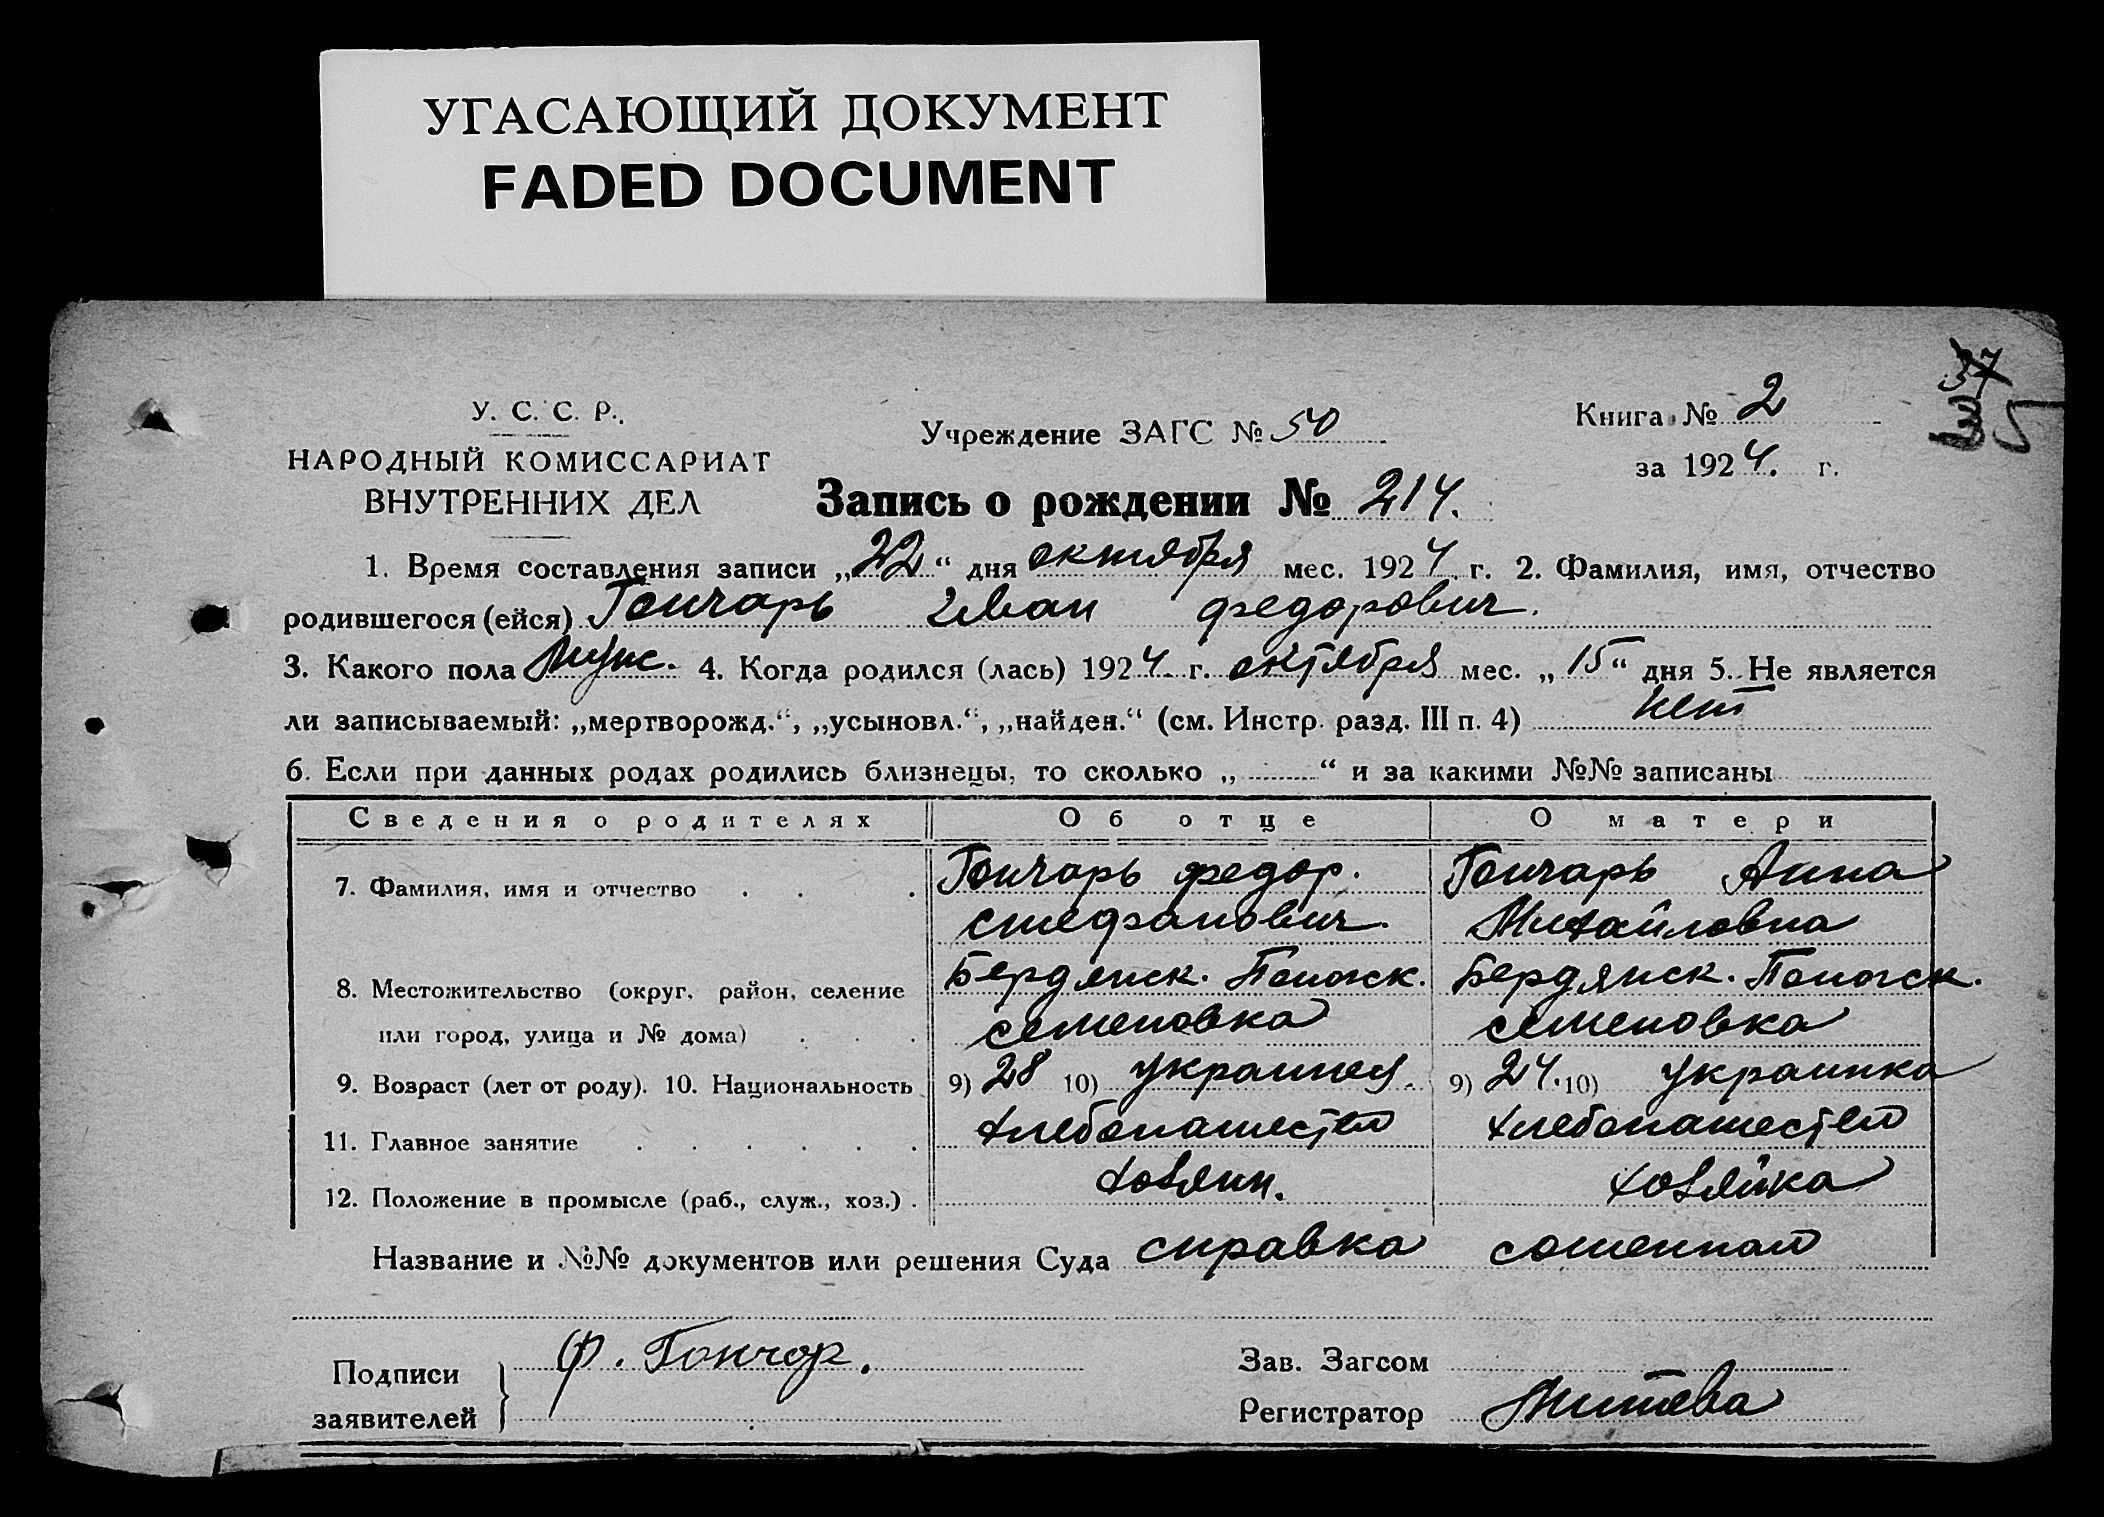 УГАСАЮЩИЙ ДОКУМЕНТ
FADED DOCUMENT
37
5
У. С. С. Р.
Учреждение ЗАГС № 50
Книга № 2
НАРОДНЫЙ КОМИССАРИАТ
за 1924. г.
ВНУТРЕННИХ ДЕЛ
Запись о рождении № 214.
1. Время составления записи „22“ дня октября мес. 1924 г. 2. Фамилия, имя, отчество
родившегося (ейся) Гончарь Иван Федорович.
3. Какого пола муж. 4. Когда родился (лась) 1924. г. октября мес. „15“ дня 5. Не является
ли записываемый: „мертворожд.“, „усыновл.“, „найден.“ (см. Инстр. разд. III п. 4) нет
6. Если при данных родах родились близнецы, то сколько „ “ и за какими №№ записаны
Сведения о родителях Об отце О матери
7. Фамилия, имя и отчество . . . Гончарь Федор. Гончарь Анна
Стефанович. Михайловна
8. Местожительство (округ, район, селение Бердянск. Пологск. Бердянск. Пологск.
или город, улица и № дома) . . . Семеновка Семеновка
9. Возраст (лет от роду). 10. Национальность 9) 28 10) Украинец. 9) 24. 10) Украинка
11. Главное занятие . . . . . . хлебопашество хлебопашество
12. Положение в промысле (раб., служ., хоз.) . хозяин. хозяйка
Название и №№ документов или решения Суда справка
Подписи
заявителей
Ф. Гончар.
Зав. Загсом
Регистратор